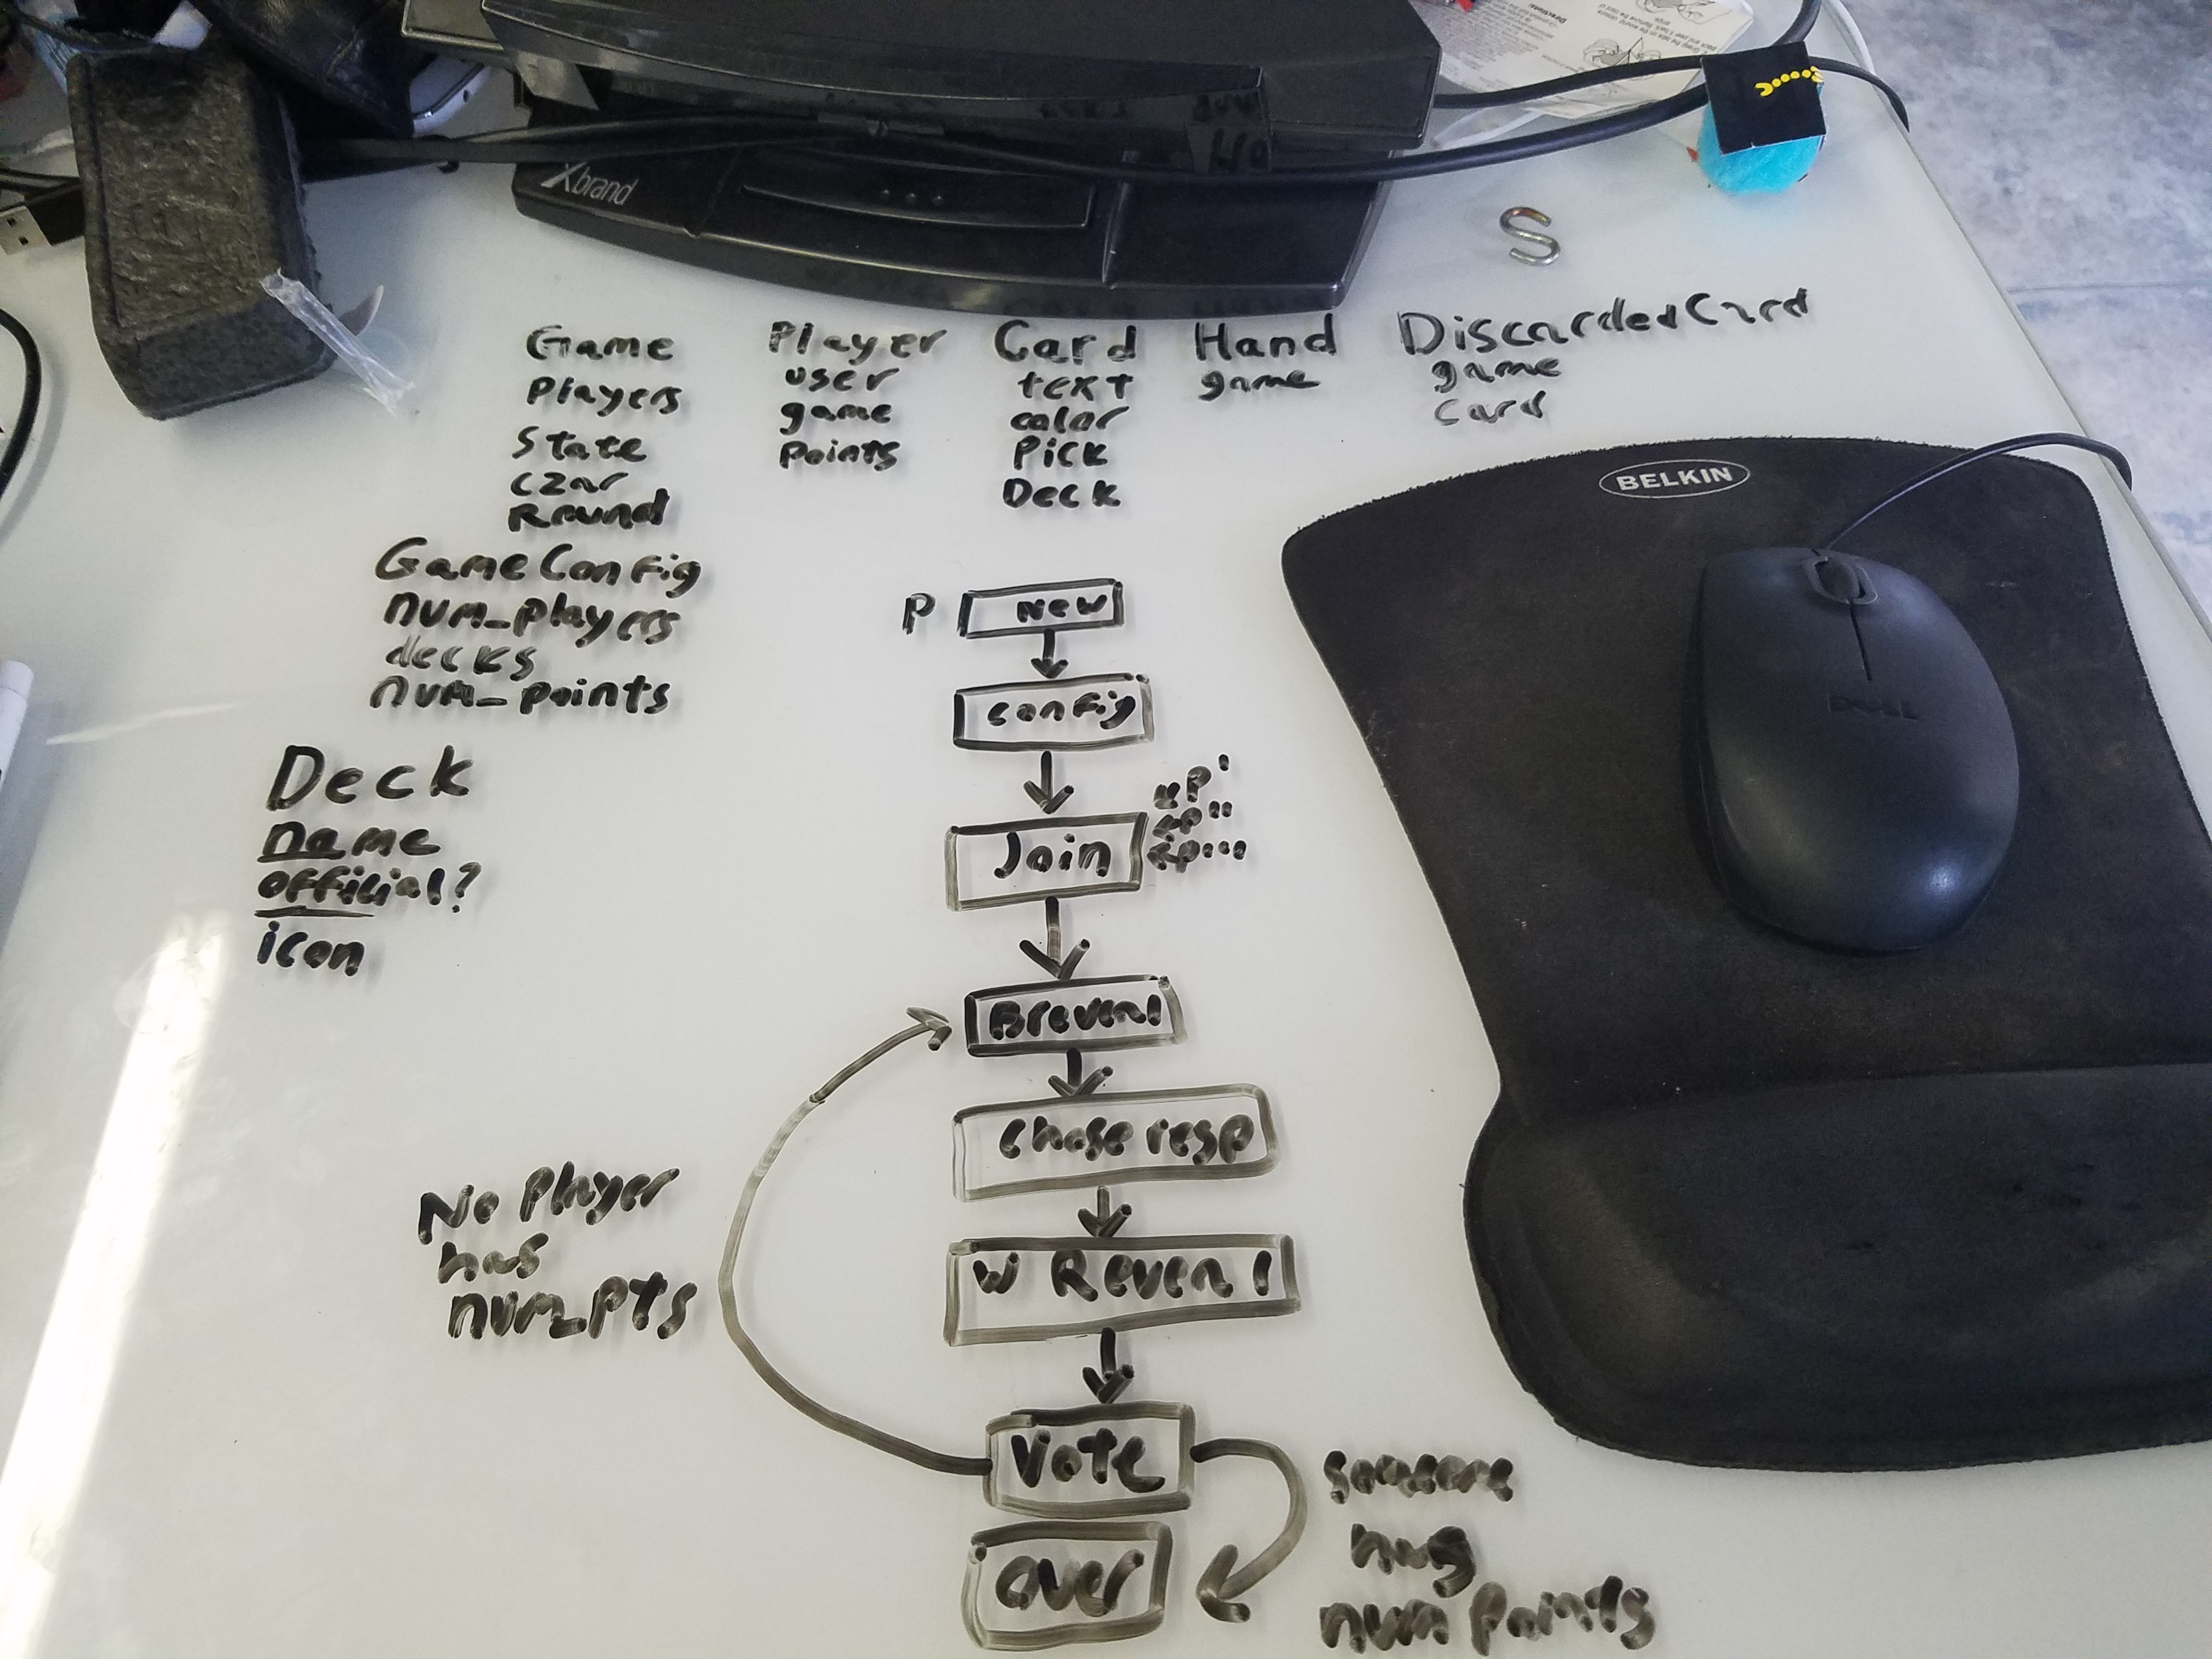 Xbrand
Game
Players
State
czar
Round
Player
user
game
points
Card
text
color
Pick
Deck
Hand
game
DiscardedCard
game
card
BELKIN
DELL
GameConfig
num_players
decks
num_points
Deck
name
official?
icon
P
New
config
Join
P'
P''
P'''
B reveal
Chose resp
W Reveal
Vote
over
No Player
has
num_pts
someone
has
num points